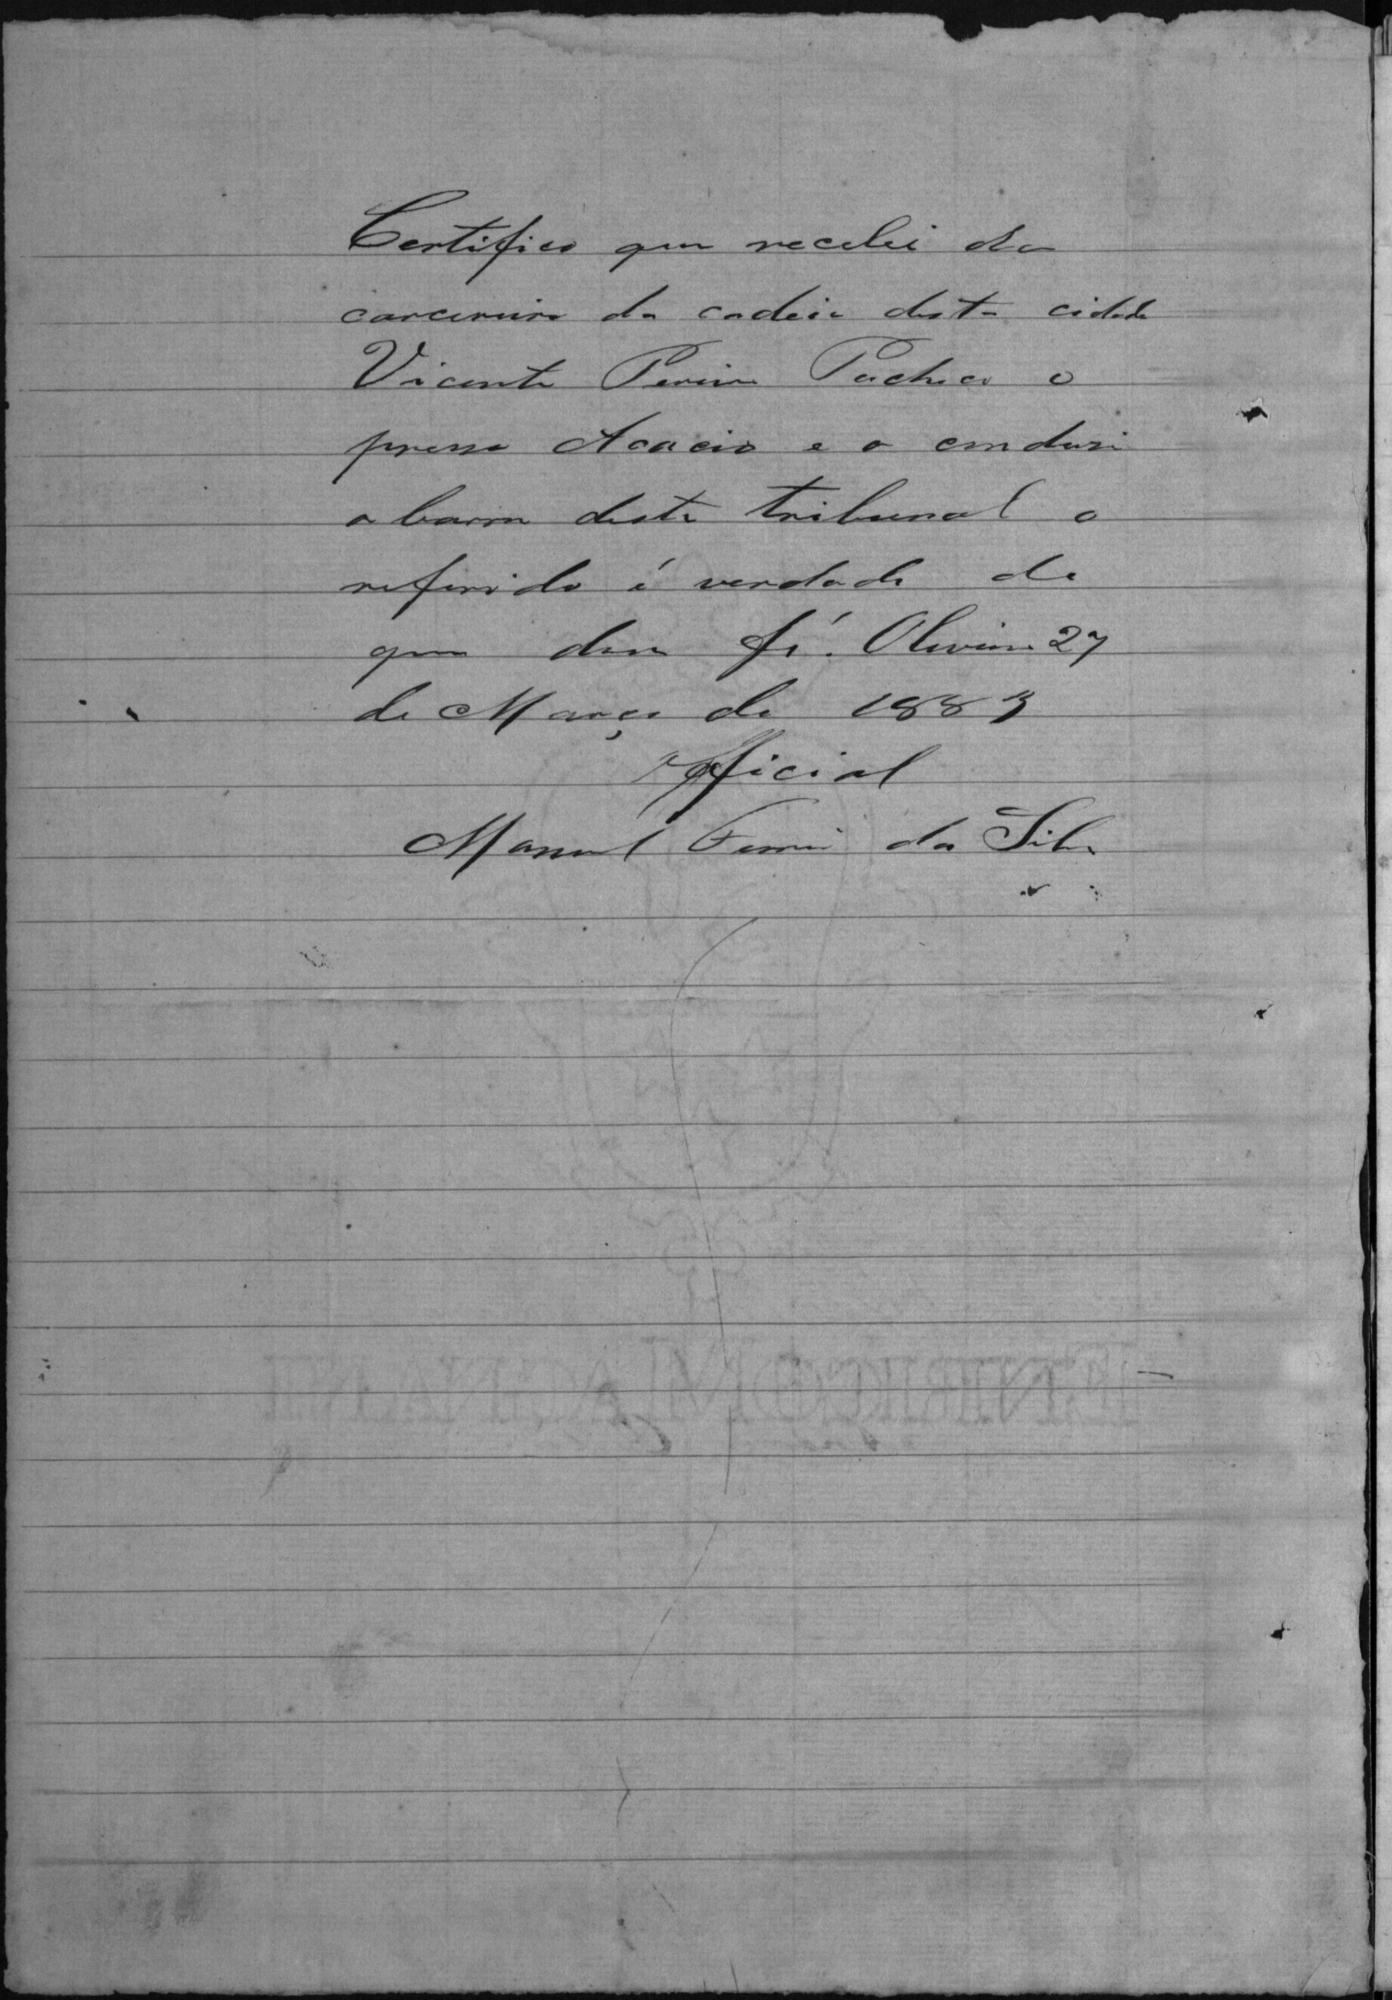 Certifico que recebi do
carcereiro da cadeia desta cidade
Vicente Pereira Pacheco o
preso Acacio e o condusi
a barra deste tribunal o
referido é verdade de
que dou fé. Oliveira 27
de Março de 1883
Official
Manoel Ferrei da Silva